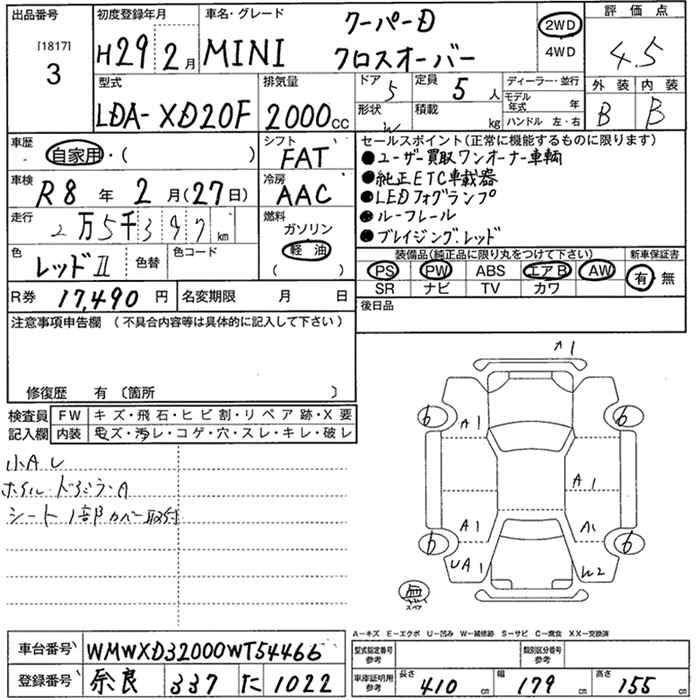 出品番号 初度登録年月 車名・グレード クーパーD 2WD 評価点
[1817] 3 H29年 2月 MINI クロスオーバー 4WD 4.5
型式 排気量 ドア 5 定員 5人 ディーラー・並行 外装 内装
LDA-XD20F 2000cc 形状 W 積載 kg モデル年式 年 B B
ハンドル 左・右
車歴 自家用・( ) シフト FAT セールスポイント(正常に機能するものに限ります)
●ユーザー買取ワンオーナー車輌
車検 R8年 2月(27日) 冷房 AAC ●純正ETC車載器
●LEDフォグランプ
走行 2万5千397km 燃料 ガソリン ●ルーフレール
軽油 ( ) ●ブレイジング.レッド
色 レッドⅡ 色替 色コード 装備品(純正品に限り丸をつけて下さい) 新車保証書
PS PW ABS エアB AW 有・無
SR ナビ TV カワ
R券 17,490円 名変期限 月 日 後日品
注意事項申告欄 (不具合内容等は具体的に記入して下さい)
修復歴 有 〔箇所 〕
検査員記入欄 FW キズ・飛石・ヒビ割・リペア跡・X要
内装 キズ・汚レ・コゲ・穴・スレ・キレ・破レ
小AU
ホイル・ドミラ・A
シート1部カバー取付
↑1
6 A1 6
A1
A1 A1
6 UA1 W2 6
無 スペア
A-キズ E-エクボ U-凹み W-補修跡 S-サビ C-腐食 XX-交換済
車台番号 WMWXD32000WT54466 型式指定番号 参考 類別区分番号 参考
登録番号 奈良 337 た 1022 車庫証明用 参考 長さ 410cm 幅 179cm 高さ 155cm